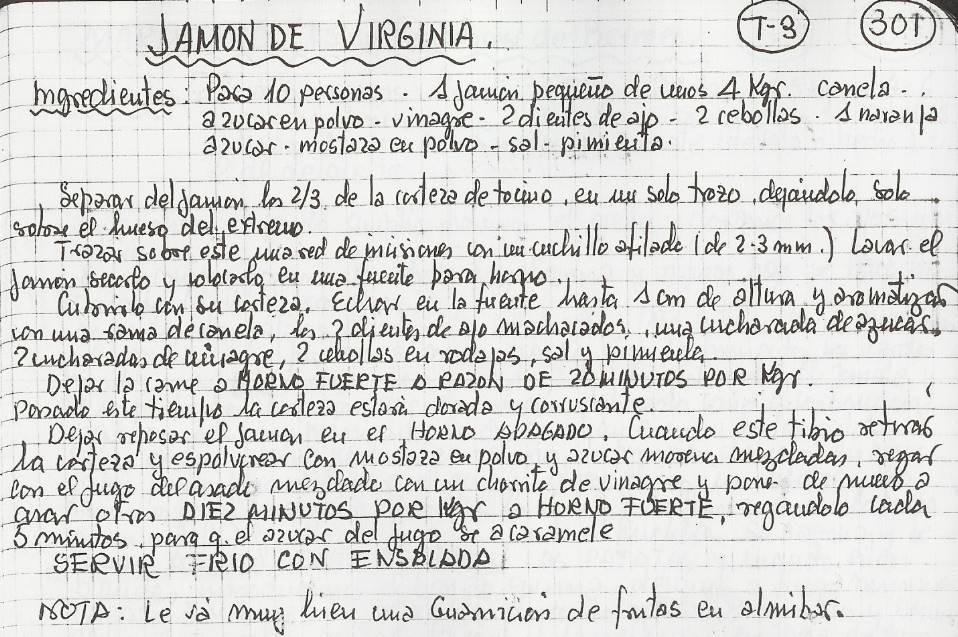 JAMON DE VIRGINIA. T-3 301
Ingredientes: Para 10 personas. 1 Jamón pequeño de unos 4 Kgr. canela..
azucar en polvo - vinagre - 2 dientes de ajo - 2 cebollas. 1 naranja
azucar - mostaza en polvo - sal - pimienta.
Separar del Jamon, los 2/3 de la corteza de tocino, en un solo trozo, dejándolo, solo
sobre el hueso del extremo.
Trazar sobre este una red de incisiones con un cuchillo afilado (de 2-3 mm.) Lavar el
Jamón secarlo y colocarlo en una fuente para horno.
Cubrirlo con su corteza. Echar en la fuente hasta 1 cm de altura y aromatizar
con una rama de canela, los 2 dientes de ajo machacados, una cucharada de azucar,
2 cucharadas de vinagre, 2 cebollas en rodajas, sal y pimienta.
Dejar la carne a HORNO FUERTE A RAZON DE 20 MINUTOS POR Kgr.
Pasado este tiempo la corteza estará dorada y corruscante.
Dejar reposar el Jamon en el HORNO APAGADO. Cuando este tibio retirar
la corteza y espolvorear con mostaza en polvo y azucar morena mezcladas, regar
con el jugo del asado mezclado con un chorrito de vinagre y poner de nuevo a
asar otros DIEZ MINUTOS POR Kgr a HORNO FUERTE, regandolo cada
5 minutos para q. el azucar del jugo se acaramele
SERVIR FRIO CON ENSALADA
NOTA: Le va muy bien una Guarnición de frutas en almibar.